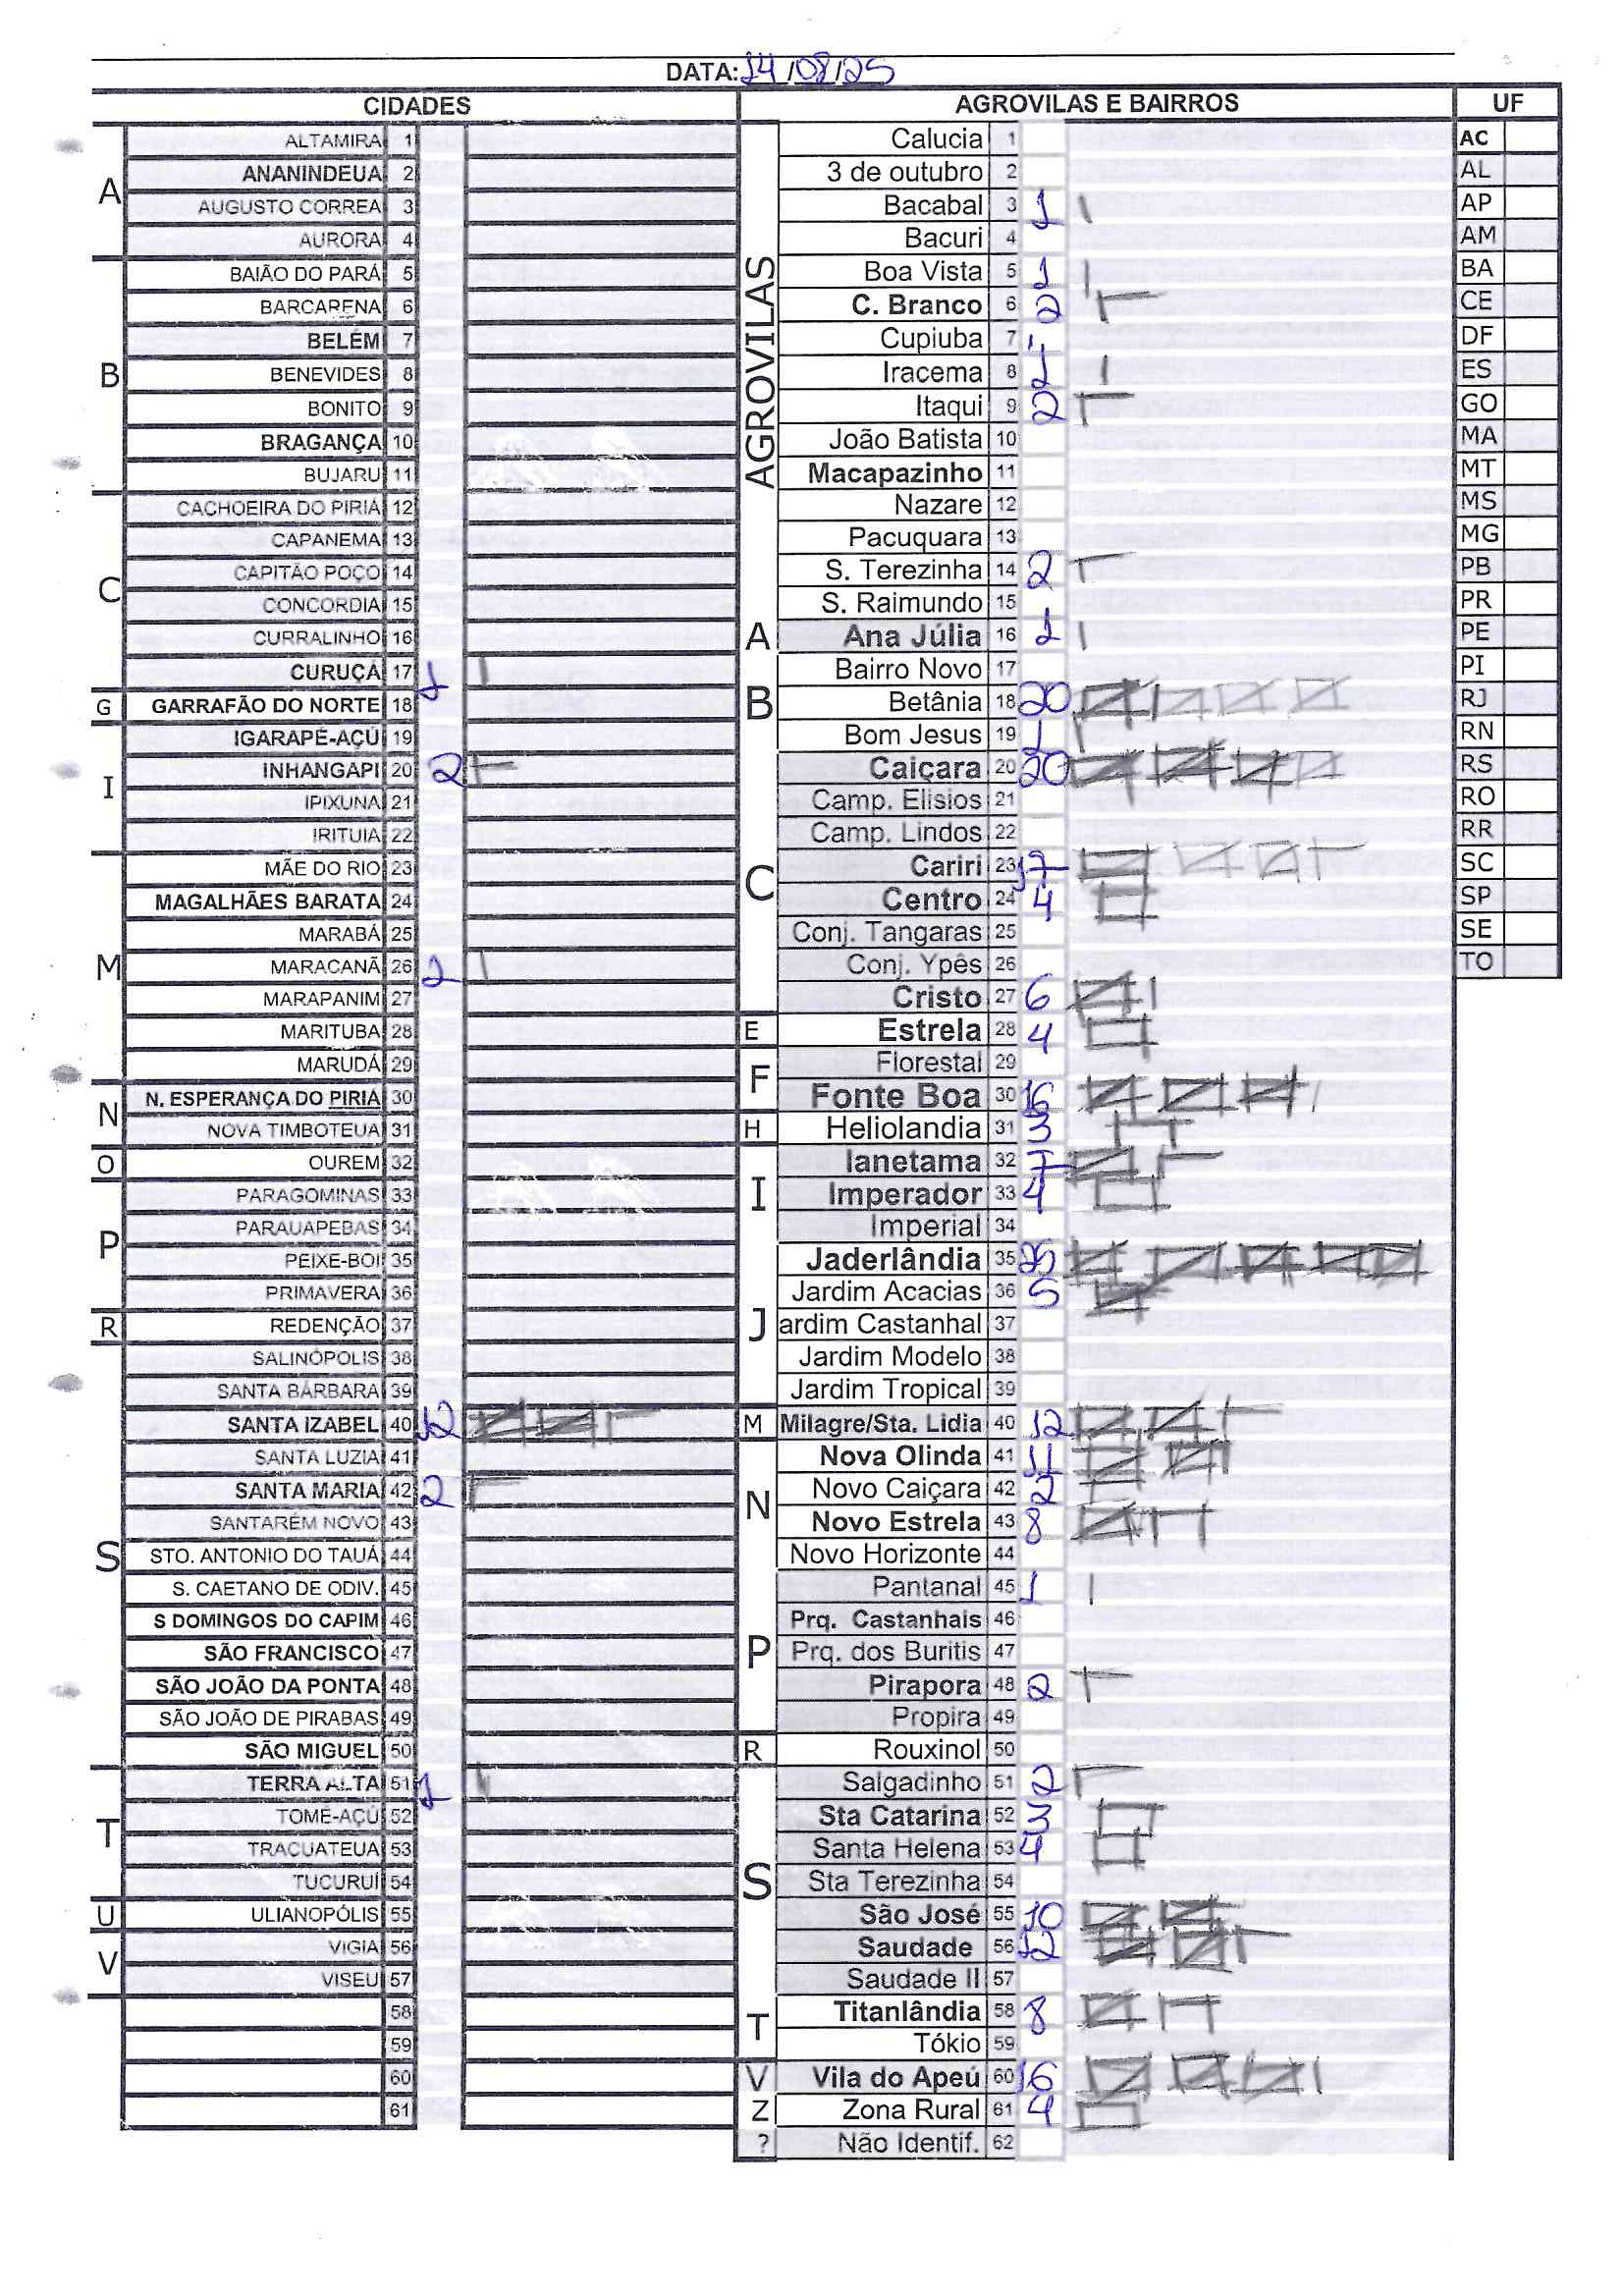 DATA: 14/08/25
CIDADES
A
ALTAMIRA 1
ANANINDEUA 2
AUGUSTO CORREA 3
AURORA 4
B
BAIÃO DO PARÁ 5
BARCARENA 6
BELÉM 7
BENEVIDES 8
BONITO 9
BRAGANÇA 10
BUJARU 11
C
CACHOEIRA DO PIRIÁ 12
CAPANEMA 13
CAPITÃO POÇO 14
CONCORDIA 15
CURRALINHO 16
CURUÇÁ 17 1
G
GARRAFÃO DO NORTE 18
I
IGARAPÉ-AÇÚ 19
INHANGAPI 20 2
IPIXUNA 21
IRITUIA 22
M
MÃE DO RIO 23
MAGALHÃES BARATA 24
MARABÁ 25
MARACANÃ 26 1
MARAPANIM 27
MARITUBA 28
MARUDÁ 29
N
N. ESPERANÇA DO PIRIA 30
NOVA TIMBOTEUA 31
O
OUREM 32
P
PARAGOMINAS 33
PARAUAPEBAS 34
PEIXE-BOI 35
PRIMAVERA 36
R
REDENÇÃO 37
S
SALINÓPOLIS 38
SANTA BÁRBARA 39
SANTA IZABEL 40 12
SANTA LUZIA 41
SANTA MARIA 42 2
SANTARÉM NOVO 43
STO. ANTONIO DO TAUÁ 44
S. CAETANO DE ODIV. 45
S DOMINGOS DO CAPIM 46
SÃO FRANCISCO 47
SÃO JOÃO DA PONTA 48
SÃO JOÃO DE PIRABAS 49
SÃO MIGUEL 50
T
TERRA ALTA 51 1
TOMÉ-AÇÚ 52
TRACUATEUA 53
TUCURUÍ 54
U
ULIANOPÓLIS 55
V
VIGIA 56
VISEU 57
58
59
60
61
AGROVILAS E BAIRROS
AGROVILAS
Calucia 1
3 de outubro 2
Bacabal 3 1
Bacuri 4
Boa Vista 5 1
C. Branco 6 2
Cupiuba 7
Iracema 8 1
Itaqui 9 2
João Batista 10
Macapazinho 11
Nazare 12
Pacuquara 13
S. Terezinha 14 2
S. Raimundo 15
A
Ana Júlia 16 1
B
Bairro Novo 17
Betânia 18 20
Bom Jesus 19 1
C
Caiçara 20 20
Camp. Elisios 21
Camp. Lindos 22
Cariri 23 17
Centro 24 4
Conj. Tangaras 25
Conj. Ypês 26
Cristo 27 6
E
Estrela 28 4
F
Florestal 29
Fonte Boa 30 16
H
Heliolandia 31 3
I
Ianetama 32 7
Imperador 33 4
Imperial 34
J
Jaderlândia 35 25
Jardim Acacias 36 5
ardim Castanhal 37
Jardim Modelo 38
Jardim Tropical 39
M
Milagre/Sta. Lidia 40 12
N
Nova Olinda 41 11
Novo Caiçara 42 2
Novo Estrela 43 8
Novo Horizonte 44
P
Pantanal 45 1
Prq. Castanhais 46
Prq. dos Buritis 47
Pirapora 48 2
Propira 49
R
Rouxinol 50
S
Salgadinho 51 2
Sta Catarina 52 3
Santa Helena 53 4
Sta Terezinha 54
São José 55 10
Saudade 56 12
Saudade II 57
T
Titanlândia 58 8
Tókio 59
V
Vila do Apeú 60 16
Z
Zona Rural 61 4
?
Não Identif. 62
UF
AC
AL
AP
AM
BA
CE
DF
ES
GO
MA
MT
MS
MG
PB
PR
PE
PI
RJ
RN
RS
RO
RR
SC
SP
SE
TO